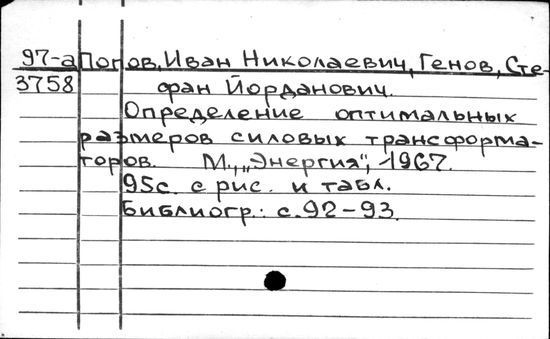 97-а Попов, Иван Николаевич, Генов, Сте-
3758 фан Йорданович.
Определение оптимальных
размеров силовых трансформа-
торов. М., „Энергия", 1967.
95с. с рис. и табл.
Библиогр.: с.92-93.